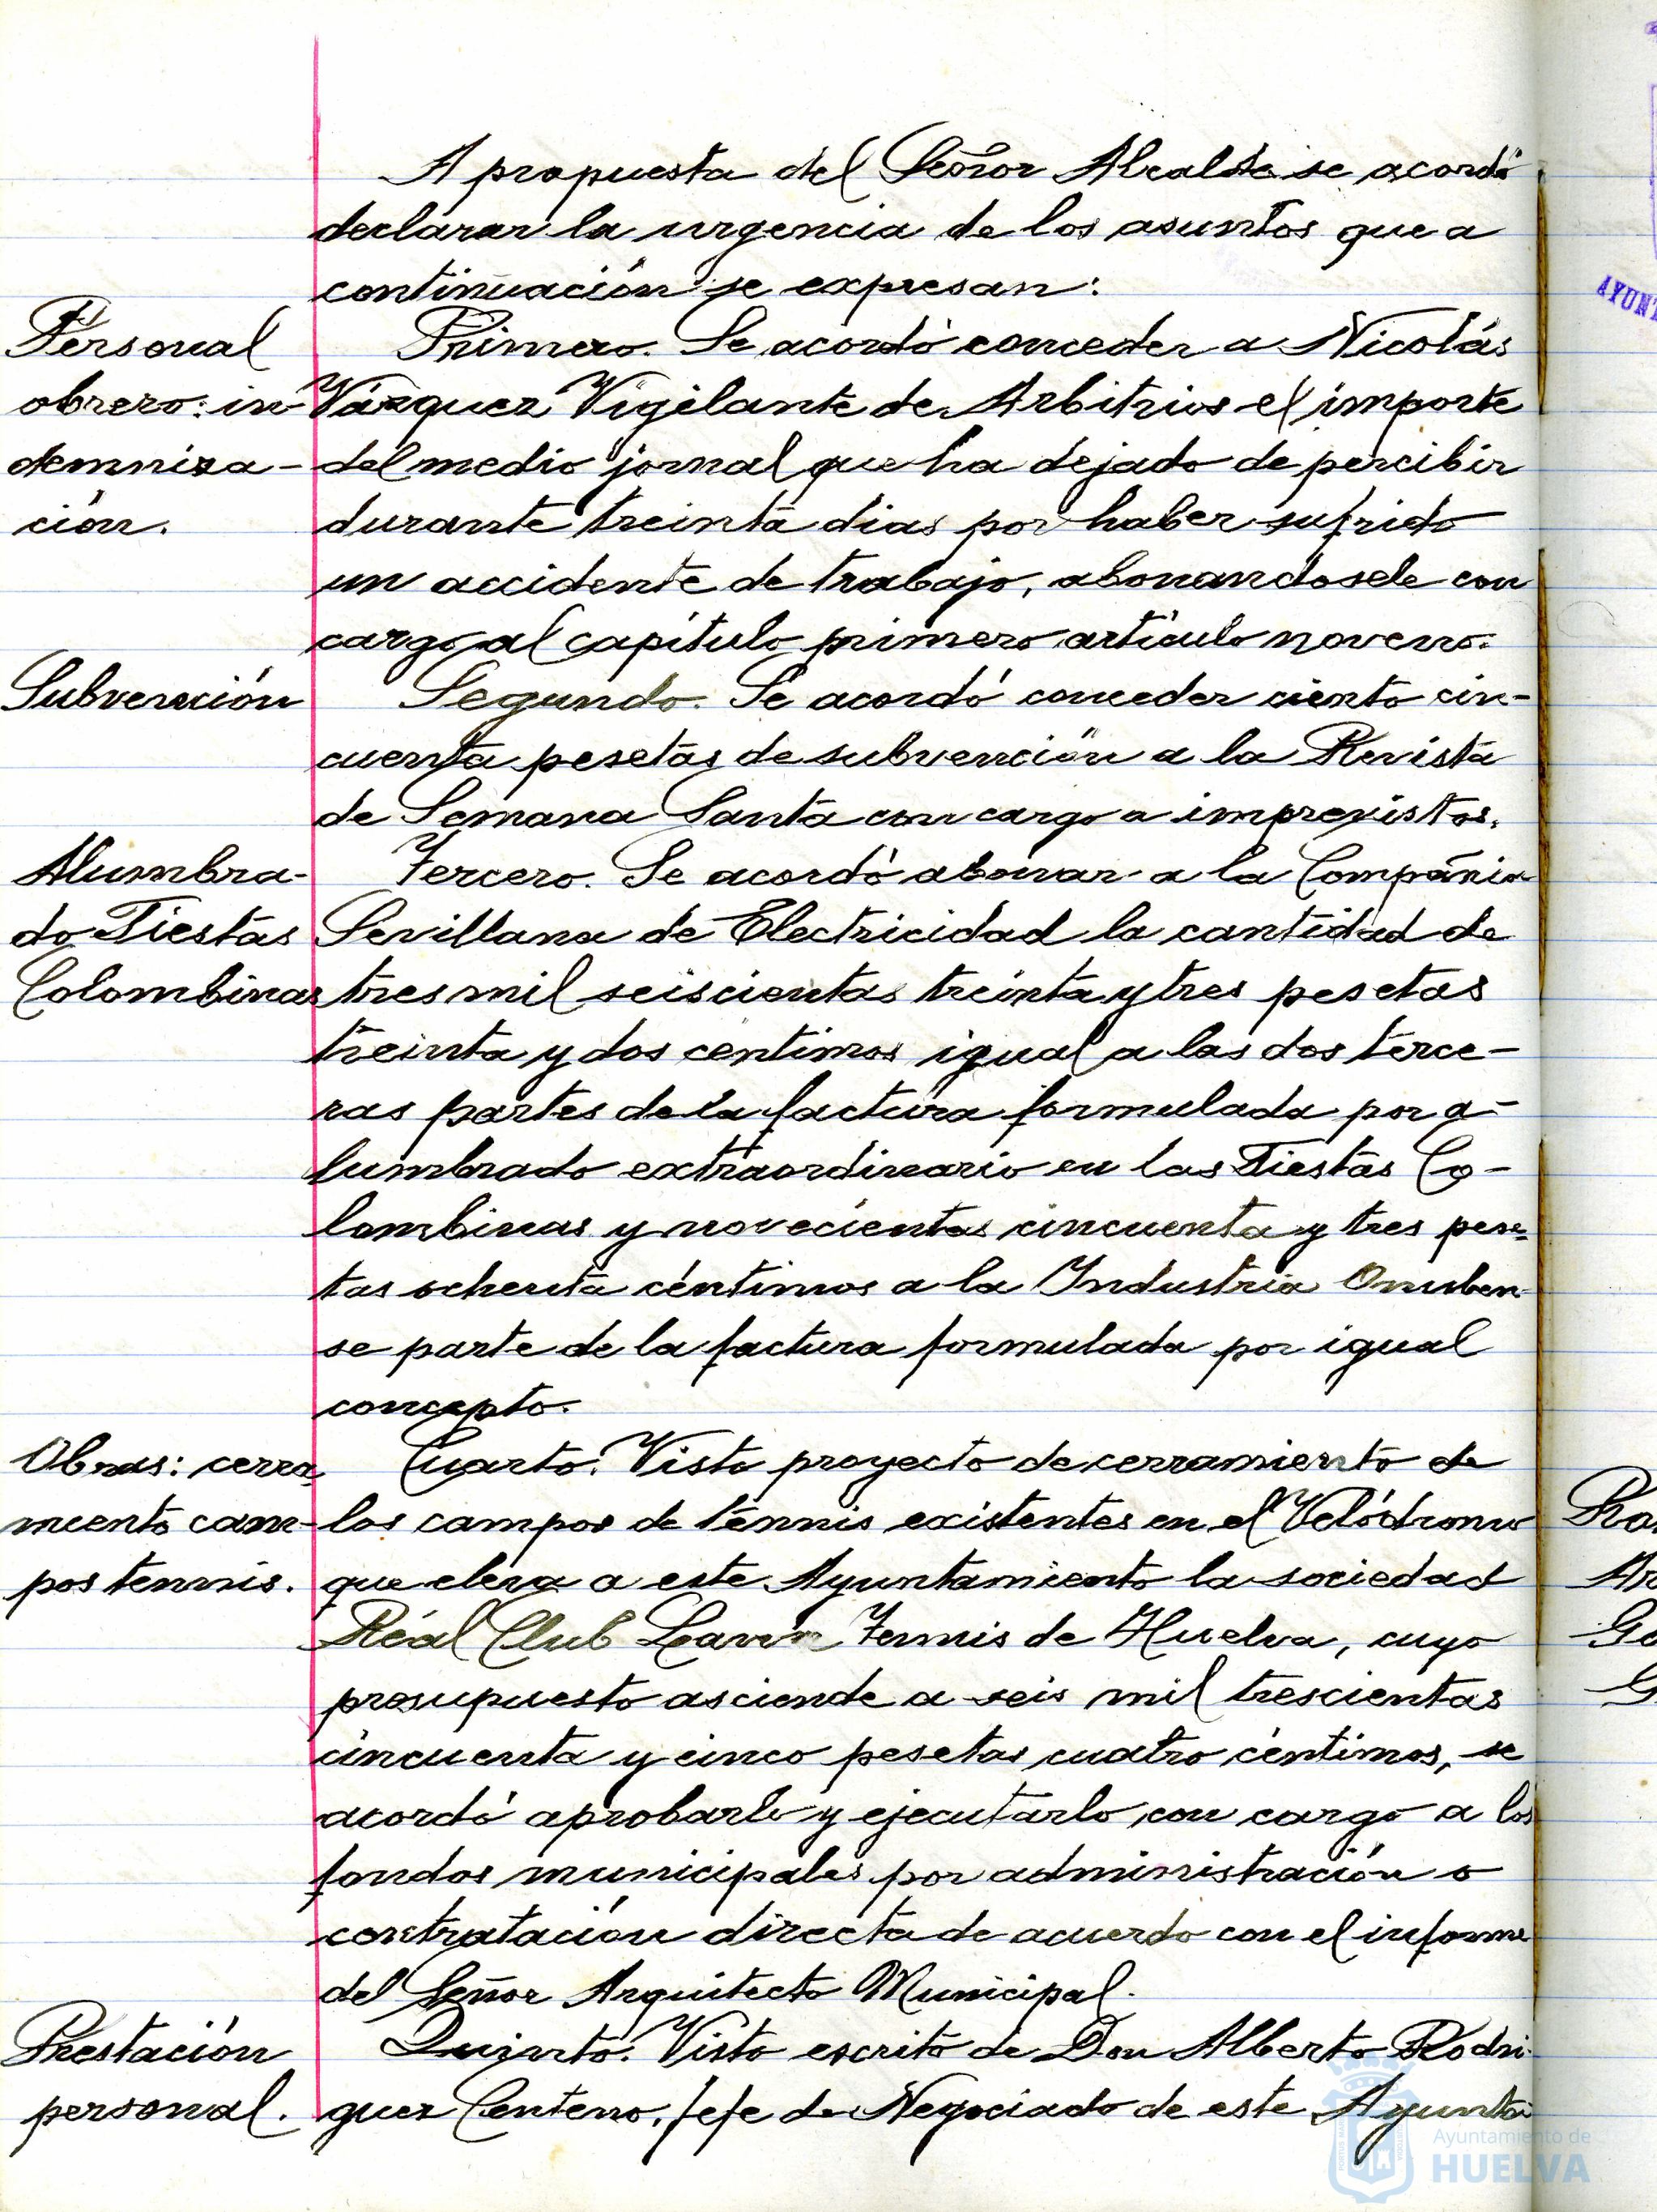 A propuesta del Señor Alcalde se acordó
declarar la urgencia de los asuntos que a
continuación se expresan:
Personal
obrero: in-
demniza-
ción.
Primero. Se acordó conceder a Nicolás
Vázquez Vigilante de Arbitrios el importe
del medio jornal que ha dejado de percibir
durante treinta dias por haber sufrido
un accidente de trabajo, abonandosele con
cargo al capítulo primero artículo noveno.
Subvención
Segundo. Se acordó conceder ciento cin-
cuenta pesetas de subvención a la Revista
de Semana Santa con cargo a imprevistos.
Alumbra-
do Fiestas
Colombinas
Tercero. Se acordó abonar a la Compañia
Sevillana de Electricidad la cantidad de
tres mil seiscientas treinta y tres pesetas
treinta y dos centimos igual a las dos terce-
ras partes de la factura formulada por a-
lumbrado extraordinario en las Fiestas Co-
lombinas y novecientas cincuenta y tres pese-
tas ochenta céntimos a la Industria Onuben-
se parte de la factura formulada por igual
concepto.
Obras: cerra-
miento cam-
pos tennis.
Cuarto. Visto proyecto de cerramiento de
los campos de tennis existentes en el Velódromo
que eleva a este Ayuntamiento la sociedad
Real Club Lawn Tennis de Huelva, cuyo
presupuesto asciende a seis mil trescientas
cincuenta y cinco pesetas cuatro céntimos, se
acordó aprobarlo y ejecutarlo con cargo a los
fondos municipales por administración o
contratación directa de acuerdo con el informe
del Señor Arquitecto Municipal.
Prestación
personal.
Quinto. Visto escrito de Don Alberto Rodri-
guez Centeno, Jefe de Negociado de este Ayunta-
Ayuntamiento de
HUELVA